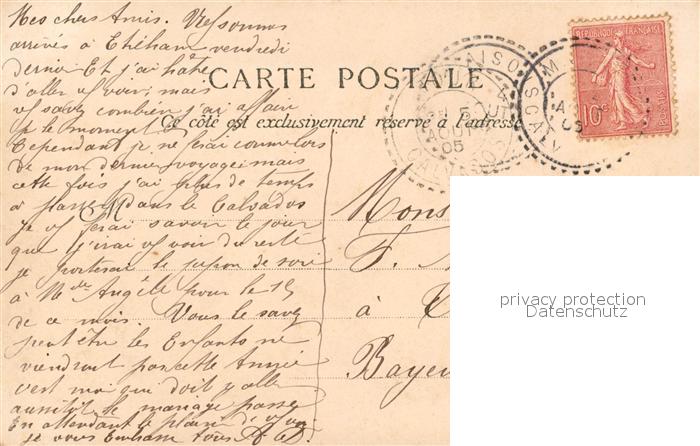 Mes chers Amis. Ns sommes
arrivés à Etréham vendredi
dernier Et j'ai hâte
d'aller vs voir, mais
vs savez combien j'ai affaire
ds le moment
Cependant je ne ferai comme lors
de mon dernier voyage, mais
cette fois j'ai plus de temps
à passer dans le Calvados
Je vs ferai savoir le jour
que j'irai vs voir du reste
je porterai le jupon de soie
à Mlle Angèle pour le 15
de ce mois. Vous le savez
peut être les Enfants ne
viendront pas cette Année
c'est moi qui doit y aller
aussitôt le mariage passé
En attendant le plaisir de vs voir
je vous Embrasse tous
CARTE POSTALE
Ce côté est exclusivement réservé à l'adresse
REPUBLIQUE FRANÇAISE
POSTES
10c
AOUT
05
CALVADOS
M
Mons
F.
à
Bayeu
privacy protection
Datenschutz